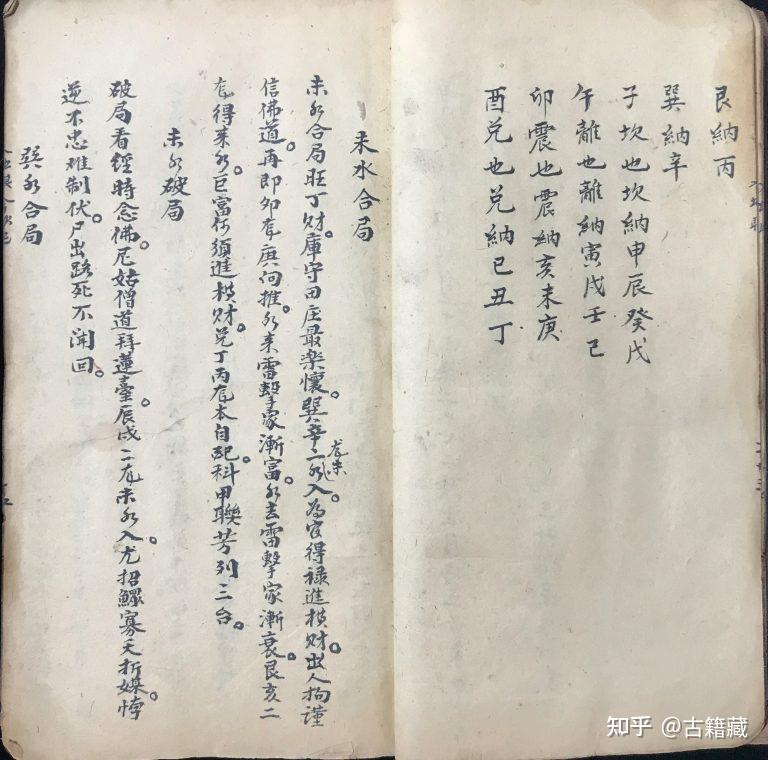 艮納丙
巽納辛
子坎也坎納申辰癸戊
午離也離納寅戌壬己
卯震也震納亥未庚
酉兌也兌納巳丑丁
未水合局
未水合局旺丁財。庫守田庄最樂懷。巽辛二水入龙未。為官得祿進橫財。出人拘謹
信佛道。再即卯龙庚向推。水来雷擊家漸富。水去雷擊家漸衰。艮亥二
龙得来水。巨富何須進橫財。兌丁丙龙本自配。科甲聯芳列三台。
未水破局
破局看經時念佛。尼姑僧道拜蓮臺。辰戌二龙未水入。尤招鰥寡夭折
逆不忠难制伏。尸出路死不闹回。
巽水合局
知乎 @古籍藏